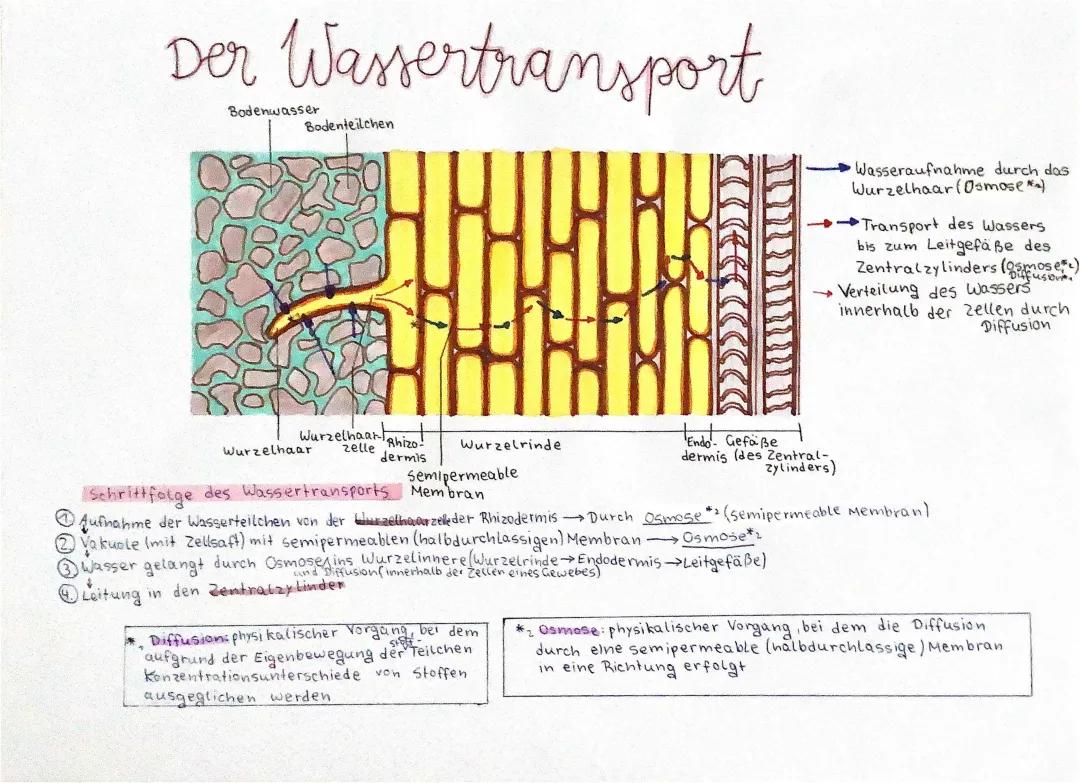 Der Wassertransport
Bodenwasser
Bodenteilchen
Wasseraufnahme durch das
Wurzelhaar (Osmose*2)
Transport des Wassers
bis zum Leitgefäße des
Zentralzylinders (Osmose,*2)
Diffusion*1
Verteilung des Wassers
innerhalb der Zellen durch
Diffusion
Wurzelhaar
Wurzelhaar-
zelle
Rhizo-
dermis
semipermeable
Membran
Wurzelrinde
Endo-
dermis
Gefäße
(des Zentral-
zylinders)
Schrittfolge des Wassertransports
1. Aufnahme der Wasserteilchen von der Wurzelhaarzelle der Rhizodermis → Durch Osmose*2 (semipermeable Membran)
2. Vakuole (mit Zellsaft) mit semipermeablen (halbdurchlässigen) Membran → Osmose*2
3. Wasser gelangt durch Osmose ins Wurzelinnere (Wurzelrinde → Endodermis → Leitgefäße)
und Diffusion (innerhalb der Zellen eines Gewebes)
4. Leitung in den Zentralzylinder
*1 Diffusion: physikalischer Vorgang, bei dem
aufgrund der Eigenbewegung der Teilchen
Konzentrationsunterschiede von Stoffen
ausgeglichen werden
*2 Osmose: physikalischer Vorgang, bei dem die Diffusion
durch eine semipermeable (halbdurchlässige) Membran
in eine Richtung erfolgt